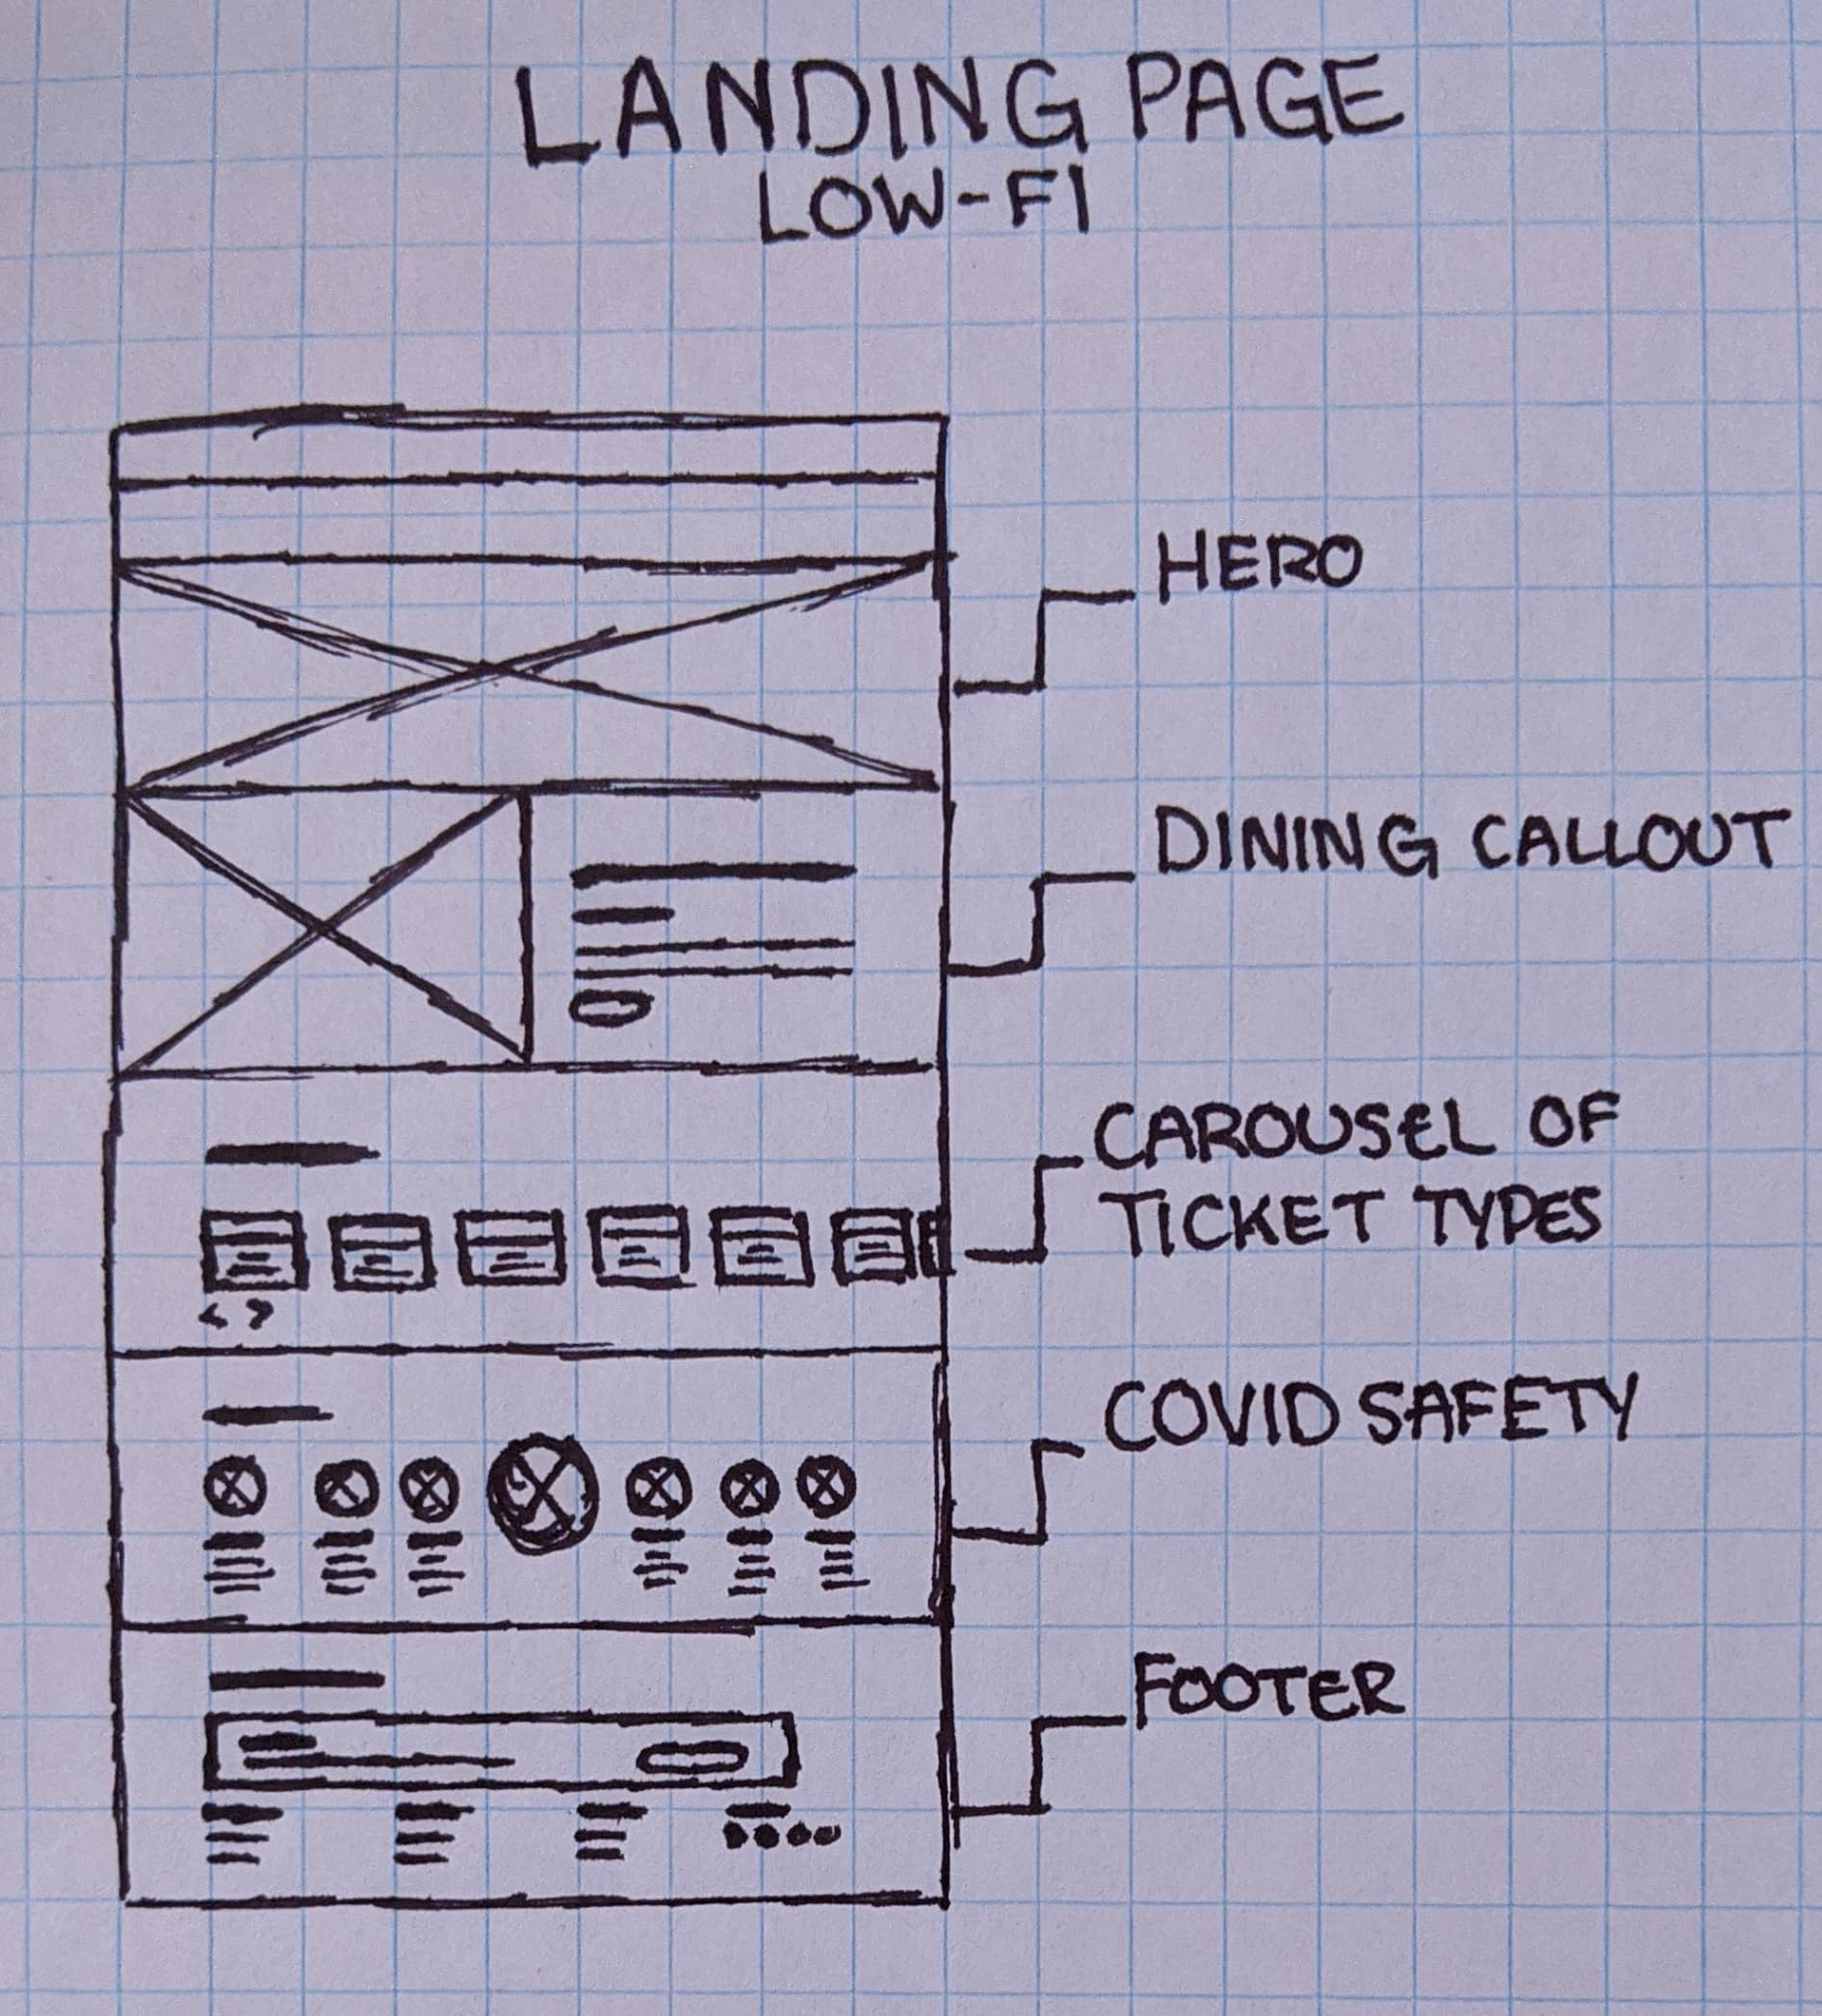 LANDING PAGE
LOW-FI
HERO
DINING CALLOUT
CAROUSEL OF
TICKET TYPES
< >
COVID SAFETY
FOOTER